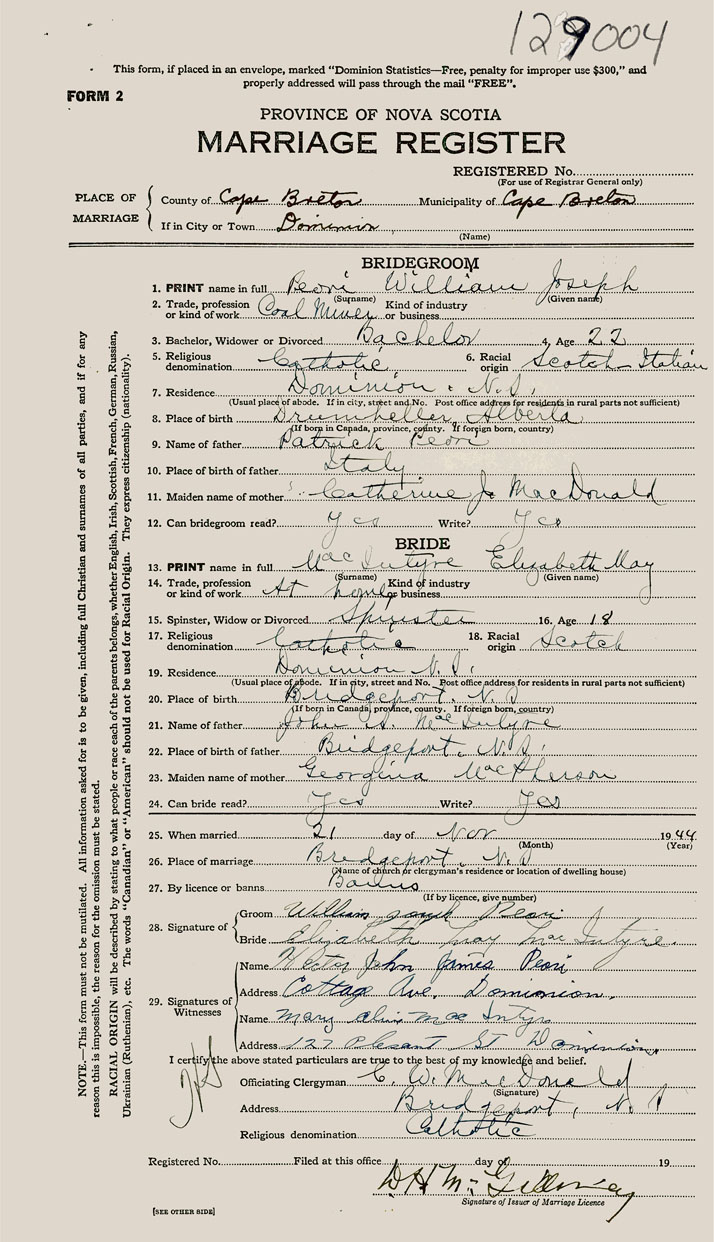 129004
This form, if placed in an envelope, marked "Dominion Statistics—Free, penalty for improper use $300," and
properly addressed will pass through the mail "FREE".
FORM 2
PROVINCE OF NOVA SCOTIA
MARRIAGE REGISTER
REGISTERED No.
(For use of Registrar General only)
PLACE OF MARRIAGE
County of Cape Breton Municipality of Cape Breton
If in City or Town Dominion
(Name)
BRIDEGROOM
1. PRINT name in full Peori William Joseph
(Surname) (Given name)
2. Trade, profession or kind of work Coal Miner Kind of industry or business
3. Bachelor, Widower or Divorced Bachelor 4. Age 22
5. Religious denomination Catholic 6. Racial origin Scotch-Italian
7. Residence Dominion, N.S.
(Usual place of abode. If in city, street and No. Post office address for residents in rural parts not sufficient)
8. Place of birth Drumheller, Alberta
(If born in Canada, province, county. If foreign born, country)
9. Name of father Patrick Peori
10. Place of birth of father Italy
11. Maiden name of mother Catherine J. MacDonald
12. Can bridegroom read? Yes Write? Yes
BRIDE
13. PRINT name in full MacIntyre Elizabeth May
(Surname) (Given name)
14. Trade, profession or kind of work At home Kind of industry or business
15. Spinster, Widow or Divorced Spinster 16. Age 18
17. Religious denomination Catholic 18. Racial origin Scotch
19. Residence Dominion N.S.
(Usual place of abode. If in city, street and No. Post office address for residents in rural parts not sufficient)
20. Place of birth Bridgeport, N.S
(If born in Canada, province, county. If foreign born, country)
21. Name of father John A. MacIntyre
22. Place of birth of father Bridgeport, N.S.
23. Maiden name of mother Georgina MacPherson
24. Can bride read? Yes Write? Yes
25. When married 21 day of Nov 1944
(Month) (Year)
26. Place of marriage Bridgeport, N.S
(Name of church or clergyman's residence or location of dwelling house)
27. By licence or banns Banns
(If by licence, give number)
28. Signature of
Groom William Joseph Peori
Bride Elizabeth May MacIntyre.
29. Signatures of Witnesses
Name Victor John James Peori
Address Cottage Ave. Dominion.
Name Mary MacIntyre
Address 127 Plesant St Dominion
I certify the above stated particulars are true to the best of my knowledge and belief.
Officiating Clergyman C. W. MacDonald
(Signature)
Address Bridgeport, N.S
Religious denomination Catholic
Registered No. Filed at this office day of 19
Signature of Issuer of Marriage Licence
[SEE OTHER SIDE]
NOTE.—This form must not be mutilated. All information asked for is to be given, including full Christian and surnames of all parties, and if for any
reason this is impossible, the reason for the omission must be stated.
RACIAL ORIGIN will be described by stating to what people or race each of the parents belongs, whether English, Irish, Scottish, French, German, Russian,
Ukrainian (Ruthenian), etc. The words "Canadian" or "American" should not be used for Racial Origin. They express citizenship (nationality).